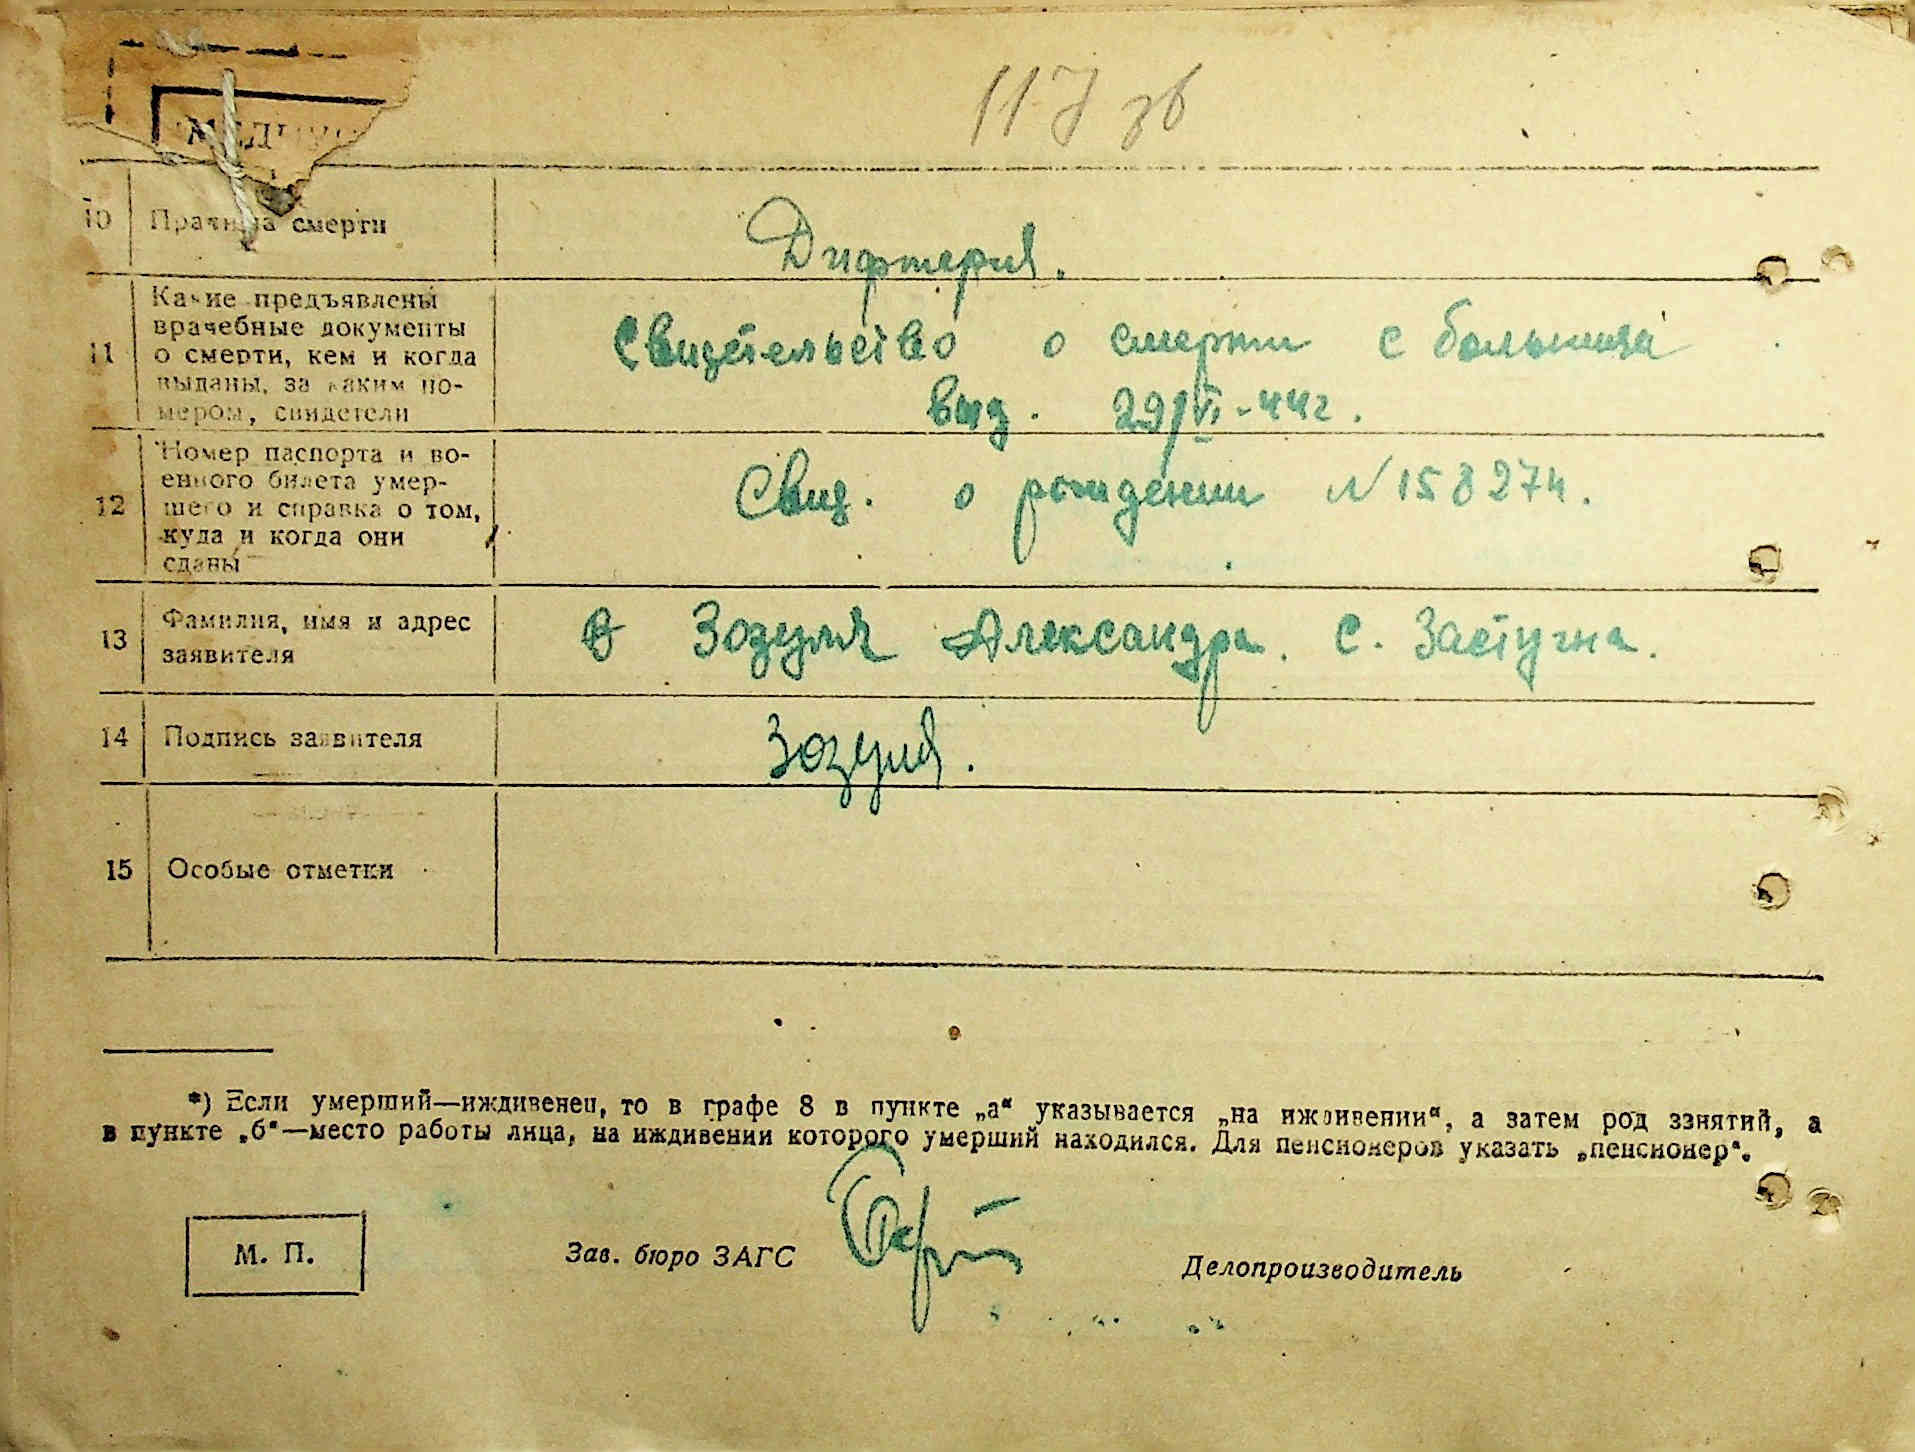 117 зв
10 Причина смерти
Дифтерия.
11 Какие предъявлены врачебные документы о смерти, кем и когда выданы, за каким номером, свидетели
Свидетельство о смерти с больницы
выд. 29/VI-44г.
12 Номер паспорта и во-
енного билета умер-
шего и справка о том,
куда и когда они
сданы
Свид. о рождении N 158274.
13 Фамилия, имя и адрес
заявителя
Зозуля Александра. с. Застугна.
14 Подпись заявителя
Зозуля.
15 Особые отметки
*) Если умерший—иждивенец, то в графе 8 в пункте „а“ указывается „на иждивении“, а затем род занятий, а
в пункте „б“—место работы лица, на иждивении которого умерший находился. Для пенсионеров указать „пенсионер“.
М. П.
Зав. бюро ЗАГС
Делопроизводитель